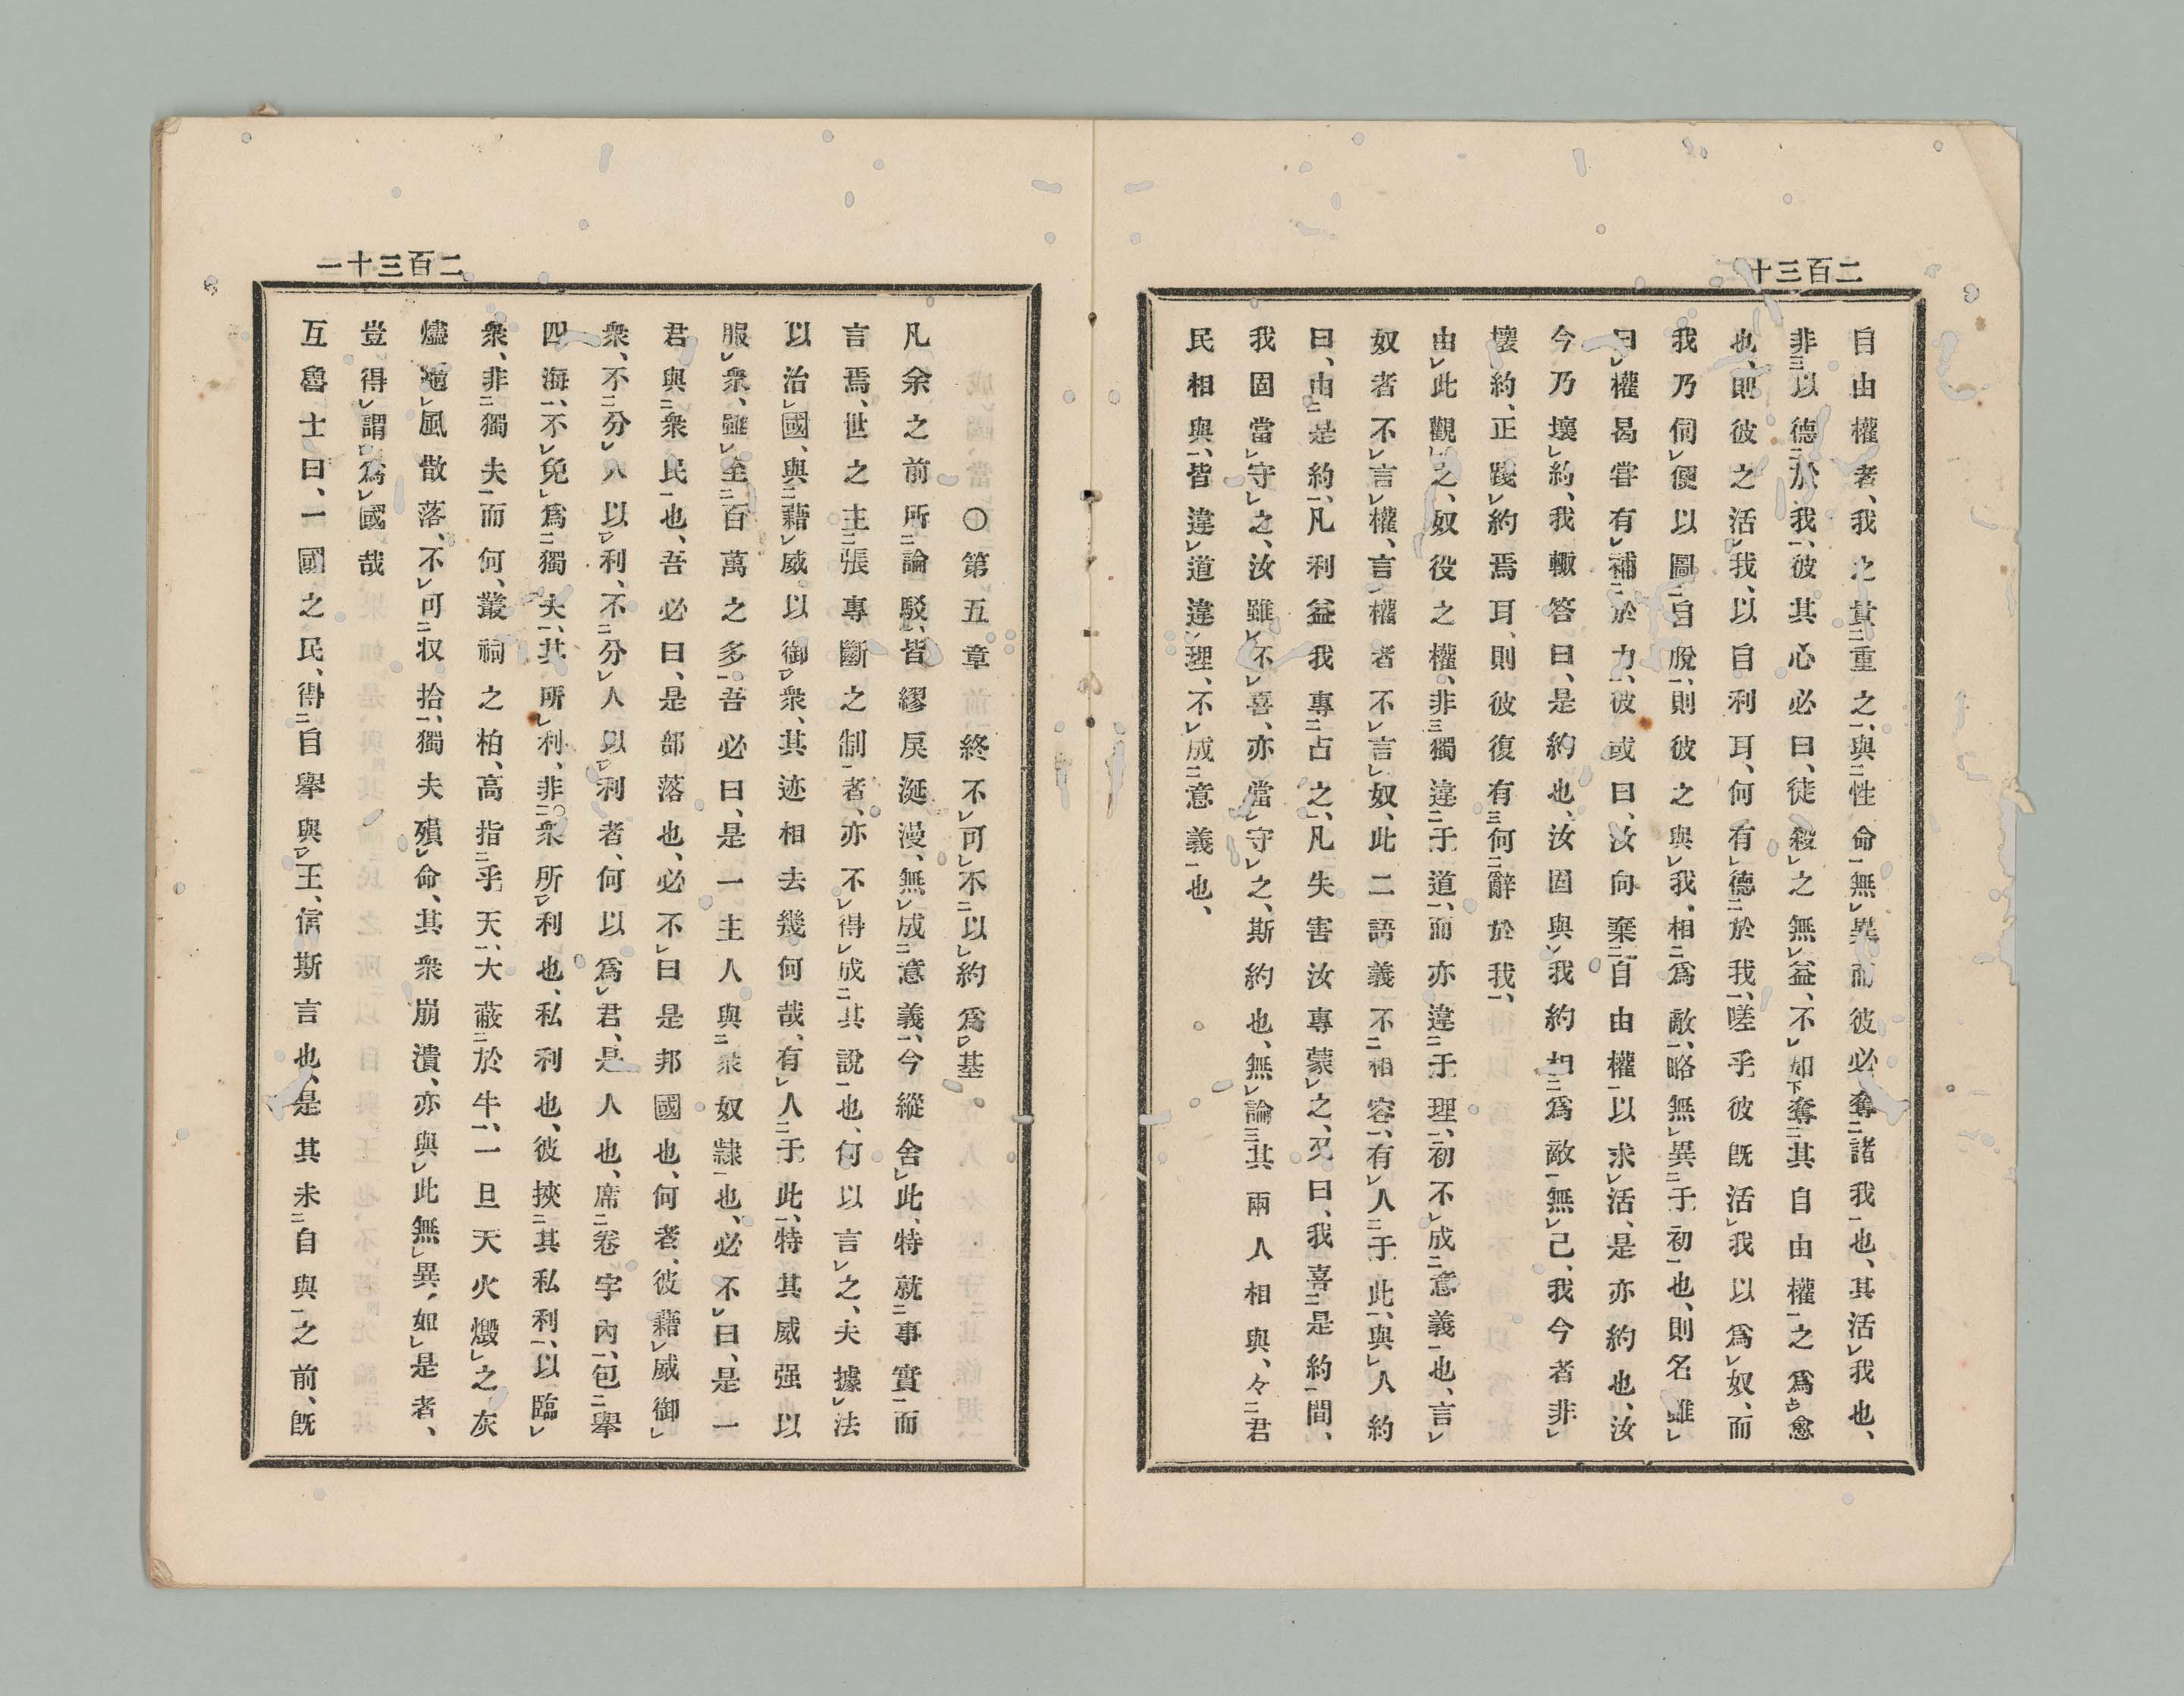 二百三十
自由權者、我之貴重之、與性命無異而彼必奪諸我也、其活我也、
非以德於我、彼其心必曰、徒殺之無益、不如奪其自由權之爲愈
也、則彼之活我、以自利耳、何有德於我、嗟乎彼既活我以爲奴、而
我乃伺便以圖自脫、則彼之與我、相爲敵、略無異于初也、則名雖
曰權曷甞有補於力、彼或曰、汝向棄自由權以求活、是亦約也、汝
今乃壞約、我輙答曰、是約也、汝固與我約相爲敵無己、我今者非
壞約、正踐約焉耳、則彼復有何辭於我、
由此觀之、奴役之權、非獨違于道、而亦違于理、初不成意義也、言
奴者不言權、言權者不言奴、此二語義不相容、有人于此、與人約
曰、由是約、凡利益我專占之、凡失害汝專蒙之、又曰、我喜是約間、
我固當守之、汝雖不喜、亦當守之、斯約也、無論其兩人相與、々君
民相與、皆違道違理、不成意義也、
二百三十一
〇第五章 終不可不以約爲基
凡余之前所論駁、皆繆戾涎漫、無成意義、今縱舍此、特就事實而
言焉、世之主張專斷之制者、亦不得成其說也、何以言之、夫據法
以治國、與藉威以御衆、其迹相去幾何哉、有人于此、特其威强以
服衆、雖至百萬之多、吾必曰、是一主人與衆奴隸也、必不曰、是一
君與衆民也、吾必曰、是部落也、必不曰是邦國也、何者、彼藉威御
衆、不分人以利、不分人以利者、何以爲君、是人也、席卷宇內、包舉
四海、不免爲獨夫、其所利、非衆所利也、私利也、彼挾其私利、以臨
衆、非獨夫而何、叢祠之柏、高指乎天、大蔽於牛、一旦天火燬之灰
燼隨風散落、不可収拾、獨夫殞命、其衆崩潰、亦與此無異、如是者、
豈得謂爲國哉
互魯士曰、一國之民、得自舉與王、信斯言也、是其未自與之前、既